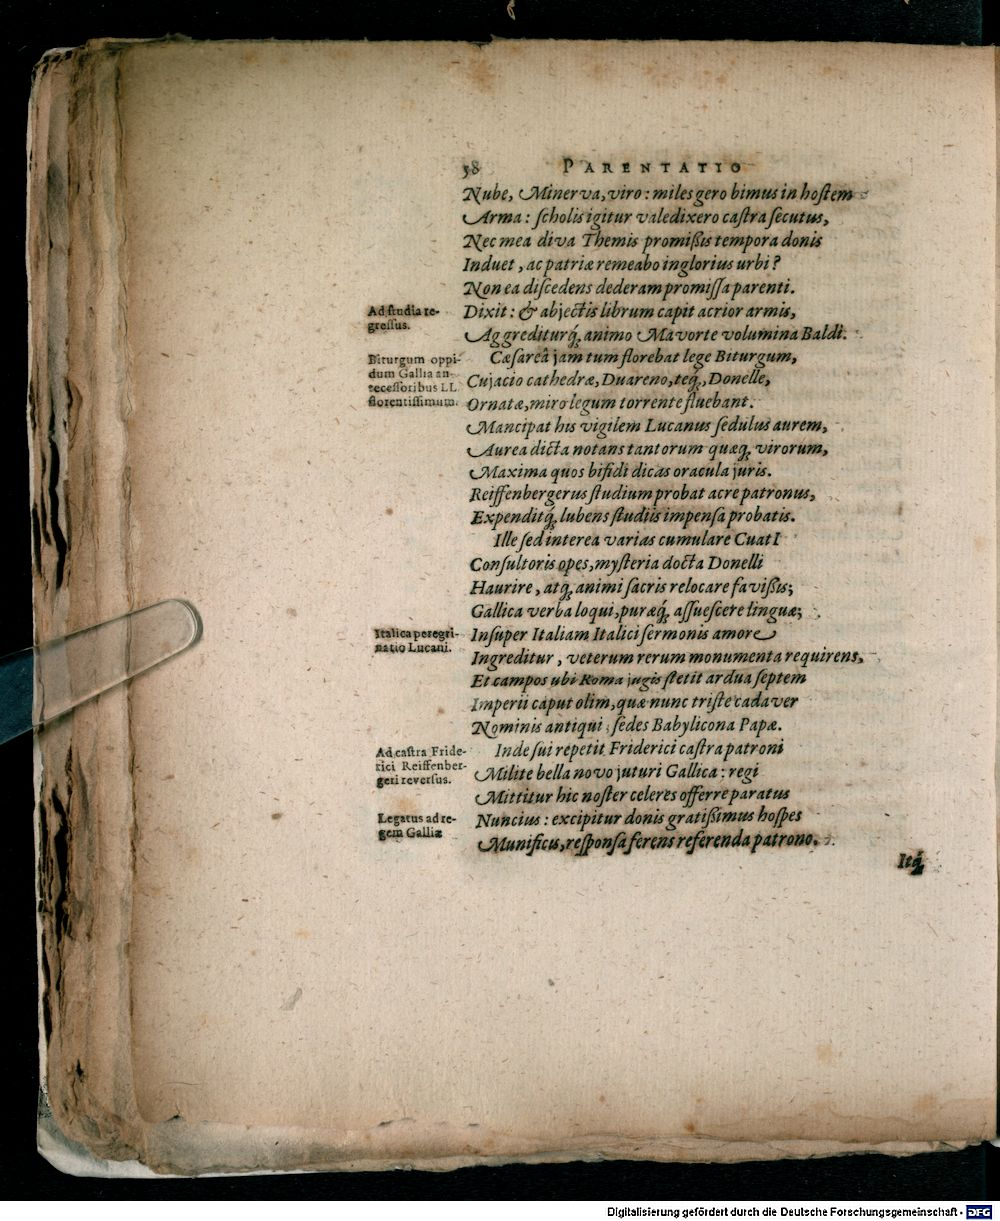 58 PARENTATIO
Nube, Minerva, viro: miles gero bimus in hostem
Arma: scholis igitur valedixero castra secutus,
Nec mea diva Themis promißis tempora donis
Induet, ac patriæ remeabo inglorius urbi?
Non ea discedens dederam promissa parenti.
Ad studia re-
gressus.
Dixit: & abjectis librum capit acrior armis,
Aggrediturq́, animo Mavorte volumina Baldi.
Biturgum oppi-
dum Gallia an-
tecessoribus LL
florentissimum.
Cæsareâ jam tum florebat lege Biturgum,
Cujacio cathedræ, Duareno, teq́, Donelle,
Ornatæ, miro legum torrente fluebant.
Mancipat his vigilem Lucanus sedulus aurem,
Aurea dicta notans tantorum quæq́, virorum,
Maxima quos bifidi dicas oracula juris.
Reiffenbergerus studium probat acre patronus,
Expenditq́, lubens studiis impensa probatis.
Ille sed interea varias cumulare CuatI
Consultoris opes, mysteria docta Donelli
Haurire, atq́, animi sacris relocare favißis;
Gallica verba loqui, puræq́, assuescere linguæ;
Italica peregri-
natio Lucani.
Insuper Italiam Italici sermonis amore
Ingreditur, veterum rerum monumenta requirens,
Et campos ubi Roma jugis stetit ardua septem
Imperii caput olim, quæ nunc triste cadaver
Nominis antiqui, sedes Babylicona Papæ.
Ad castra Fride-
rici Reiffenber-
geri reversus.
Inde sui repetit Friderici castra patroni
Milite bella novo juturi Gallica: regi
Mittitur hic noster celeres offerre paratus
Legatus ad re-
gem Galliæ
Nuncius: excipitur donis gratißimus hospes
Munificis, responsa ferens referenda patrono.
Itq́,
Digitalisierung gefördert durch die Deutsche Forschungsgemeinschaft - DFG